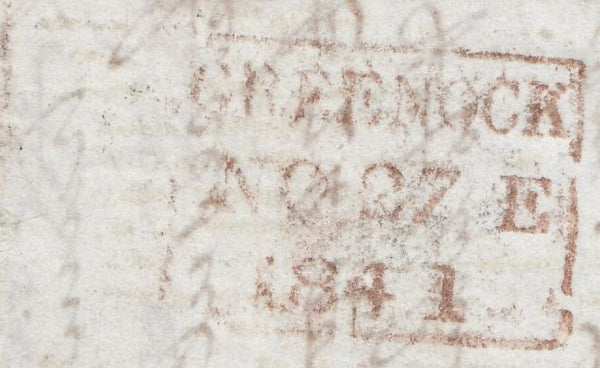 GREENOCK
27 E
1841